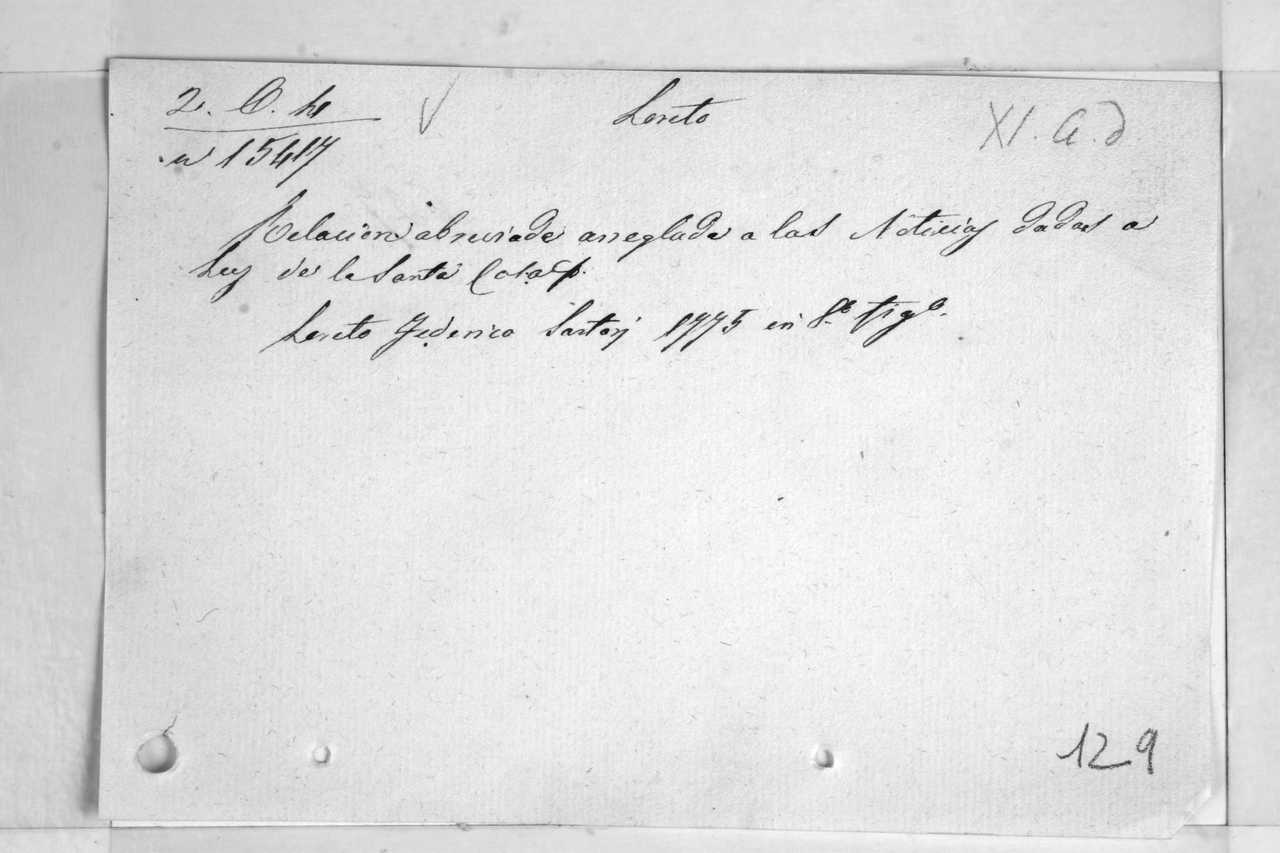 2. O. h Loreto XI. G. d
n 15417
Relacion abreviade arreglade a las Noticias dadas a
Luz de la Santa Casa
Loreto Federico Sartorj 1775 in 8.º fig.º
129